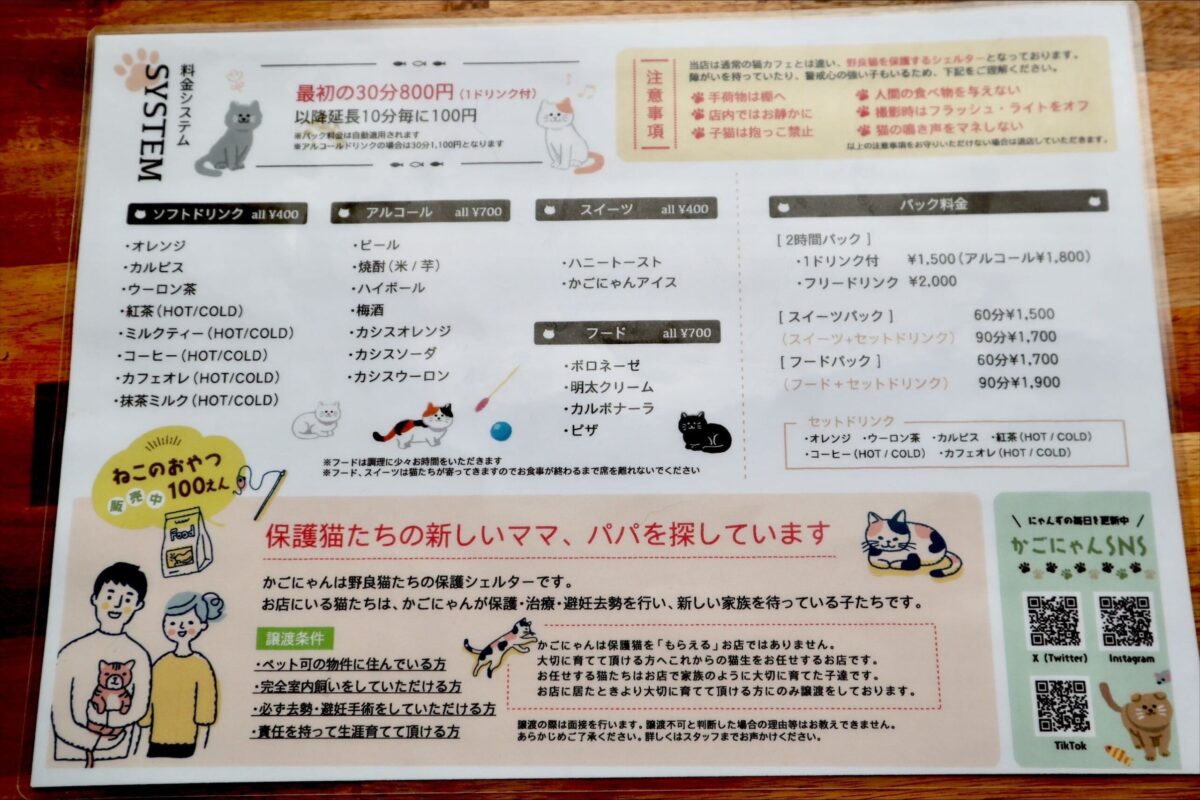 料金システム
SYSTEM
最初の30分800円（1ドリンク付）
以降延長10分毎に100円
※パック料金は自動適用されます
※アルコールドリンクの場合は30分1,100円となります
注意事項
当店は通常の猫カフェとは違い、野良猫を保護するシェルターとなっております。
障がいを持っていたり、警戒心の強い子もいるため、下記をご理解ください。
手荷物は棚へ
店内ではお静かに
子猫は抱っこ禁止
人間の食べ物を与えない
撮影時はフラッシュ・ライトをオフ
猫の鳴き声をマネしない
以上の注意事項をお守りいただけない場合は退店していただきます。
ソフトドリンク all ¥400
・オレンジ
・カルピス
・ウーロン茶
・紅茶（HOT/COLD）
・ミルクティー（HOT/COLD）
・コーヒー（HOT/COLD）
・カフェオレ（HOT/COLD）
・抹茶ミルク（HOT/COLD）
アルコール all ¥700
・ビール
・焼酎（米 / 芋）
・ハイボール
・梅酒
・カシスオレンジ
・カシスソーダ
・カシスウーロン
スイーツ all ¥400
・ハニートースト
・かごにゃんアイス
フード all ¥700
・ボロネーゼ
・明太クリーム
・カルボナーラ
・ピザ
※フードは調理に少々お時間をいただきます
※フード、スイーツは猫たちが寄ってきますのでお食事が終わるまで席を離れないでください
パック料金
[ 2時間パック ]
・1ドリンク付 ¥1,500（アルコール¥1,800）
・フリードリンク ¥2,000
[ スイーツパック ] 60分¥1,500
（スイーツ+セットドリンク） 90分¥1,700
[ フードパック ] 60分¥1,700
（フード＋セットドリンク） 90分¥1,900
セットドリンク
・オレンジ ・ウーロン茶 ・カルピス ・紅茶（HOT / COLD）
・コーヒー（HOT / COLD） ・カフェオレ（HOT / COLD）
ねこのおやつ
販売中 100えん
Food
保護猫たちの新しいママ、パパを探しています
かごにゃんは野良猫たちの保護シェルターです。
お店にいる猫たちは、かごにゃんが保護・治療・避妊去勢を行い、新しい家族を待っている子たちです。
譲渡条件
・ペット可の物件に住んでいる方
・完全室内飼いをしていただける方
・必ず去勢・避妊手術をしていただける方
・責任を持って生涯育てて頂ける方
かごにゃんは保護猫を「もらえる」お店ではありません。
大切に育てて頂ける方へこれからの猫生をお任せするお店です。
お任せする猫たちはお店で家族のように大切に育てた子達です。
お店に居たときより大切に育てて頂ける方にのみ譲渡をしております。
譲渡の際は面接を行います。譲渡不可と判断した場合の理由等はお教えできません。
あらかじめご了承ください。詳しくはスタッフまでお声かけください。
にゃんずの毎日を更新中
かごにゃんSNS
X（Twitter）
Instagram
TikTok